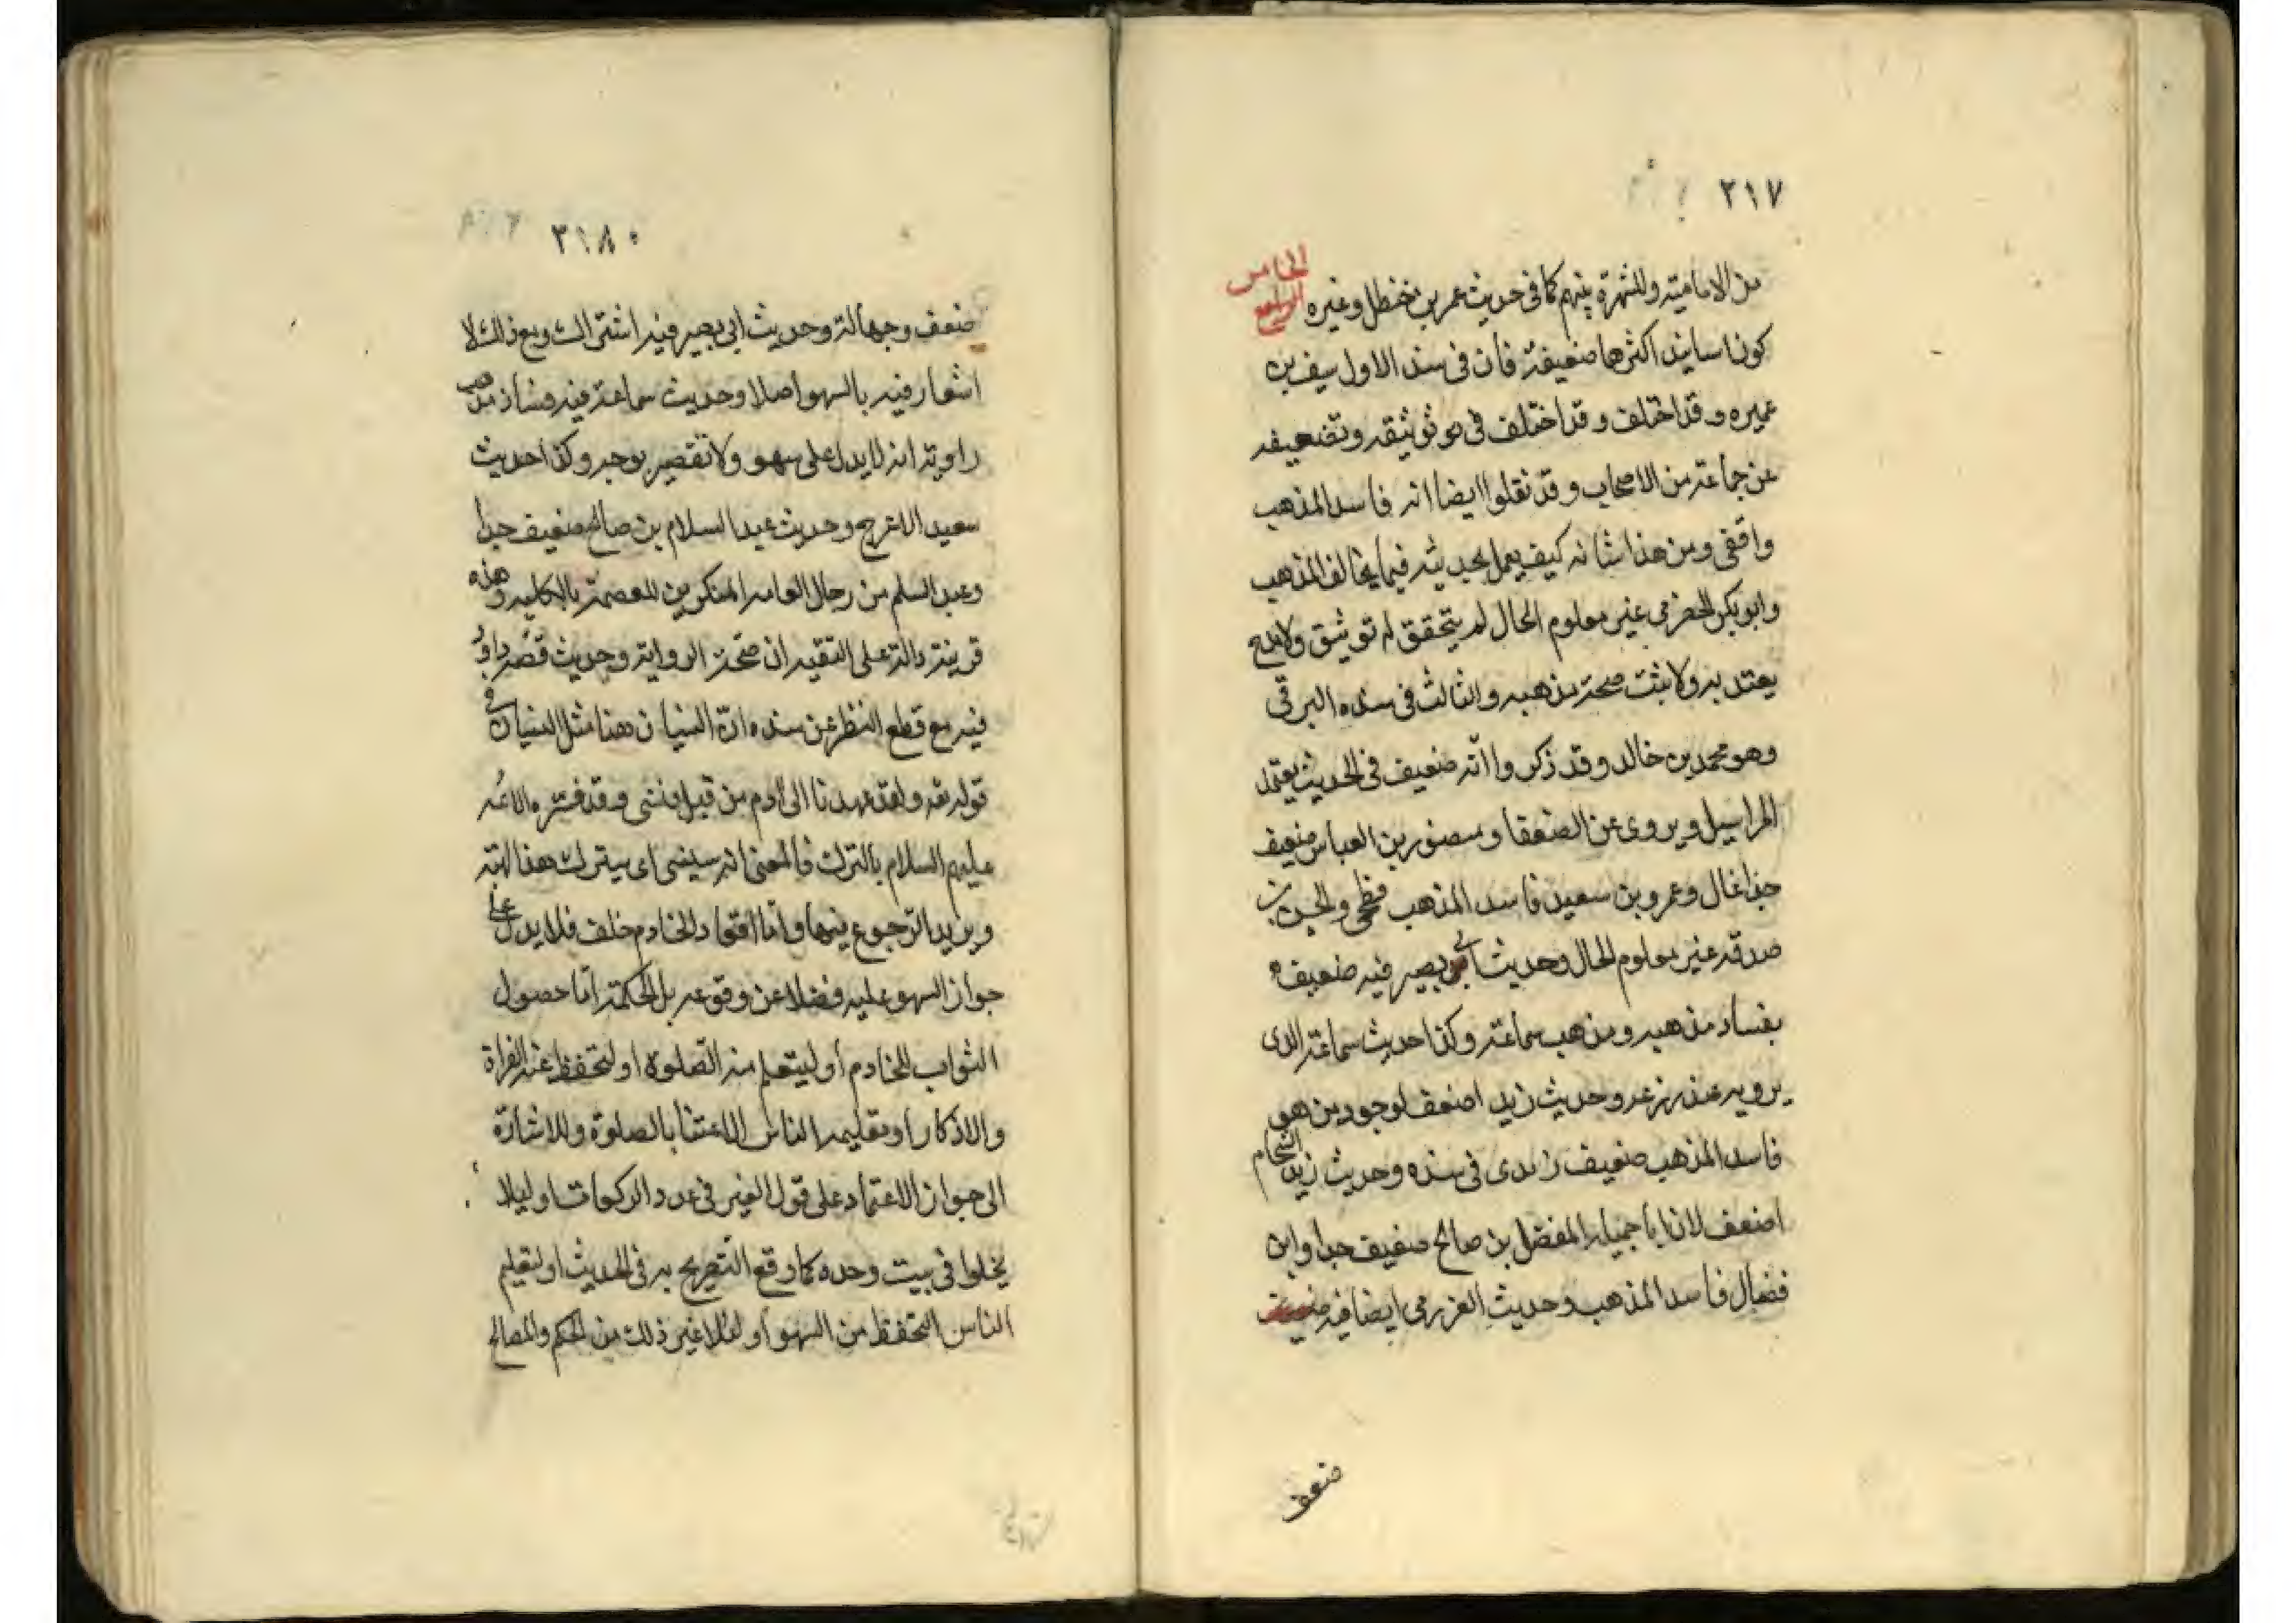 ٢١٧
من الامامية وللشهرة بينهم كما فى حديث عمر بن حنظل وغيره الخامس
الرابع
كون اسانيد اكثرها ضعيفة فان فى سند الاول سيف بن
عميره وقد اختلف وقد اختلف فى توثيقه وتضعيفه
عن جماعة من الاصحاب وقد نقلوا ايضا انه فاسد المذهب
واقفى ومن هذا شانه كيف يعمل بحديثه فيما يخالف المذهب
وابو بكر الحضرمى غير معلوم الحال لم يتحقق له توثيق ولا مدح
يعتد به ولا يثبت صحة مذهبه والثالث فى سنده البرقى
وهو محمد بن خالد وقد ذكروا انّه ضعيف فى الحديث يعتمد
المراسيل ويروى عن الضعفا ومنصور بن العباس ضعيف
جدا غال وعمرو بن سعيد فاسد المذهب فطحى والحسن بن
صدقه غير معلوم الحال وحديث ابى بصير فيه ضعيف
بفساد مذهبه ومذهب سماعة وكذا حديث سماعة الذى
يرويه عنه زرعه وحديث زيد اضعف لوجود من هو
فاسد المذهب ضعيف زيدى فى سنده وحديث زيد الشحام
اضعف لان ابا جميله المفضل بن صالح ضعيف جدا وابن
فضال فاسد المذهب وحديث العزرمى ايضا فيه
ضعف
٣١٨٠
ضعف وجهالة وحديث ابى بصير فيه اشتراك ومع ذلك لا
اشعار فيه بالسهو اصلا وحديث سماعة فيه فساد مذهب
راويه انه لا يدل على سهو ولا تقصير بوجه وكذا حديث
سعيد الاعرج وحديث عبد السلام بن صالح ضعيف جدا
وعبد السلم من رجال العامه المنكرين للعصمة بالكليه وهذه
قرينة دالة على التقيه ان صحّت الرواية وحديث قصّة داود
فيه مع قطع النظر عن سنده انّ النسيان هنا مثل النسيان فى
قوله تعه ولقد عهدنا الى ادم من قبل فنسى وقد فسّره الائمه
عليهم السلام بالترك فالمعنى انه سينسى اى سيترك هذا
ويريد الرجوع فيها وامّا اقتعاد الخادم خلفه فلا يدل على
جواز السهو عليه فضلا عن وقوعه بل الحكمة امّا حصول
الثواب للخادم او ليتعلم منه الصّلوة او لتحفظ عنه القراة
والاذكار او تعليمه الناس الاعتنا بالصلوة وللاشارة
الى جواز الاعتماد على قول الغير فى عدد الركعات او ليلا
يخلوا فى بيت وحده كما وقع التصريح به فى الحديث او لتعليم
الناس التحفظ من السهو او غير ذلك من الحكم والمصالح